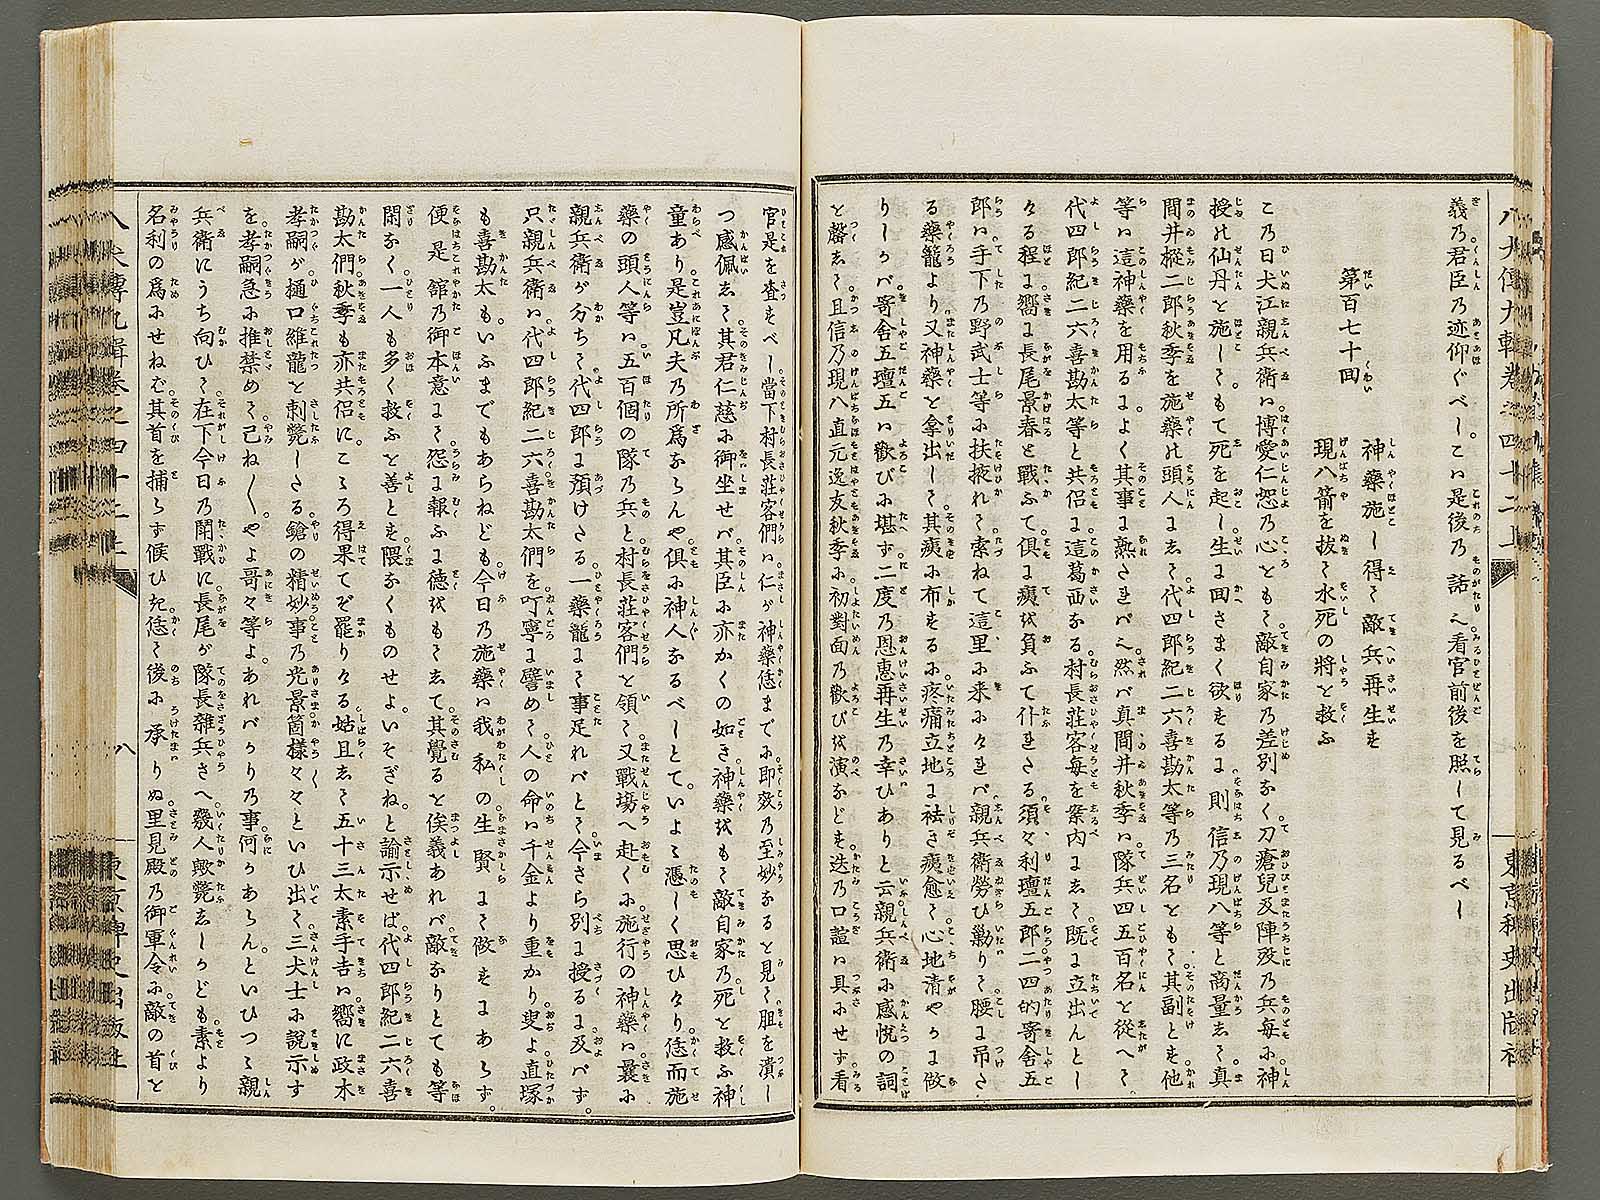 義乃君臣乃迹仰ぐべしこハ是後乃話へ看官前後を照して見るべし
第百七十回
神藥施し得て敵兵再生す
現八箭を拔て水死の將を救ふ
この日犬江親兵衛ハ博愛仁恕乃心ともて敵自家乃差別なく刀瘡兒及陣歿乃兵毎に神
授の仙丹と施してもて死を起し生に回さまく欲するに則信乃現八等と商量して眞
間井樅二郎秋季を施藥の頭人にして代四郎紀二六喜勘太等乃三名ともて其副とす他
等ハ這神藥を用るによく其事に熟されバへ然バ眞間井秋季ハ隊兵四五百名と從へて
代四郎紀二六喜勘太等と共侶に這葛西なる村長莊客毎を案内にして既に立出んとし
々る程に嚮に長尾景春と戰ふて倶に痍を負ふて仆れたる須々利壇五郎二四的寄舍五
郎ハ手下乃野武士等に扶掖れて索ねて這里に來にけれバ親兵衛勞ひ勦りて腰に吊た
る藥籠より又神藥と拿出して其痍に布するに疼痛立地に袪き痍愈て心地清やかに做
りしかバ寄舍五壇五ハ歡びに堪ず二度乃恩惠再生乃幸ひありと云親兵衛に感悦の詞
と磬して且信乃現八直元逸友秋季に初對面乃歡びを演などす迭乃口誼ハ具にせず看
官是を査すべし當下村長莊客們ハ仁が神藥恁まで小即效乃至妙なると見て胆を潰し
つ感佩して其君仁慈に御坐せバ其臣に亦かくの如き神藥をもて敵自家乃死と救ふ神
童あり是豈凡夫乃所爲ならんや倶に神人なるべしとていよゝ憑しく思ひけり恁而施
藥の頭人等ハ五百個の隊乃兵と村長莊客們と領て又戰場へ赴くに施行の神藥ハ曩に
親兵衛が分ちて代四郎に預けたる一藥籠にて事足れバとて今さら別に授るに及バず
只親兵衛ハ代四郎紀二六喜勘太們を叮寧に譬めて人の命ハ千金より重かり叟よ直塚
も喜勘太もいふまでもあらねども今日乃施藥ハ我私の生賢にて做すにあらず
便是舘乃御本意にて怨に報ふに德をもてして其覺ると俟義あれバ敵なりとても等
閑なく一人も多く救ふと善とす隈なくものせよいそぎねと諭示せば代四郎紀二六喜
勘太們秋季も亦共侶にこゝろ得果てぞ罷りける姑且して五十三太素手吉ハ嚮に政木
孝嗣が樋口維龍と刺斃したる鎗の精妙事乃光景箇樣々々といひ出て三犬士に説示す
を孝嗣急に推禁めて己ね〳〵やよ哥々等よあれバかり乃事何かあらんといひつゝ親
兵衛にうち向ひて在下今日乃鬪戰に長尾が隊長雜兵さへ幾人歟斃ししかども素より
名利の爲にせねば其首を捕らず候ひき恁て後に承りぬ里見殿乃御軍令に敵の首と
八犬傳九輯卷之四十二上
東京稗史出版社
八犬傳九輯卷之四十二上
八
東京稗史出版社